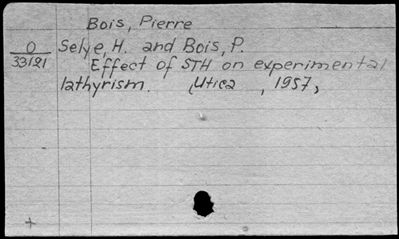 Bois, Pierre
O Selye, H. and Bois, P.
33121 Effect of STH on experimental
lathyrism. (Utica , 1957,
+